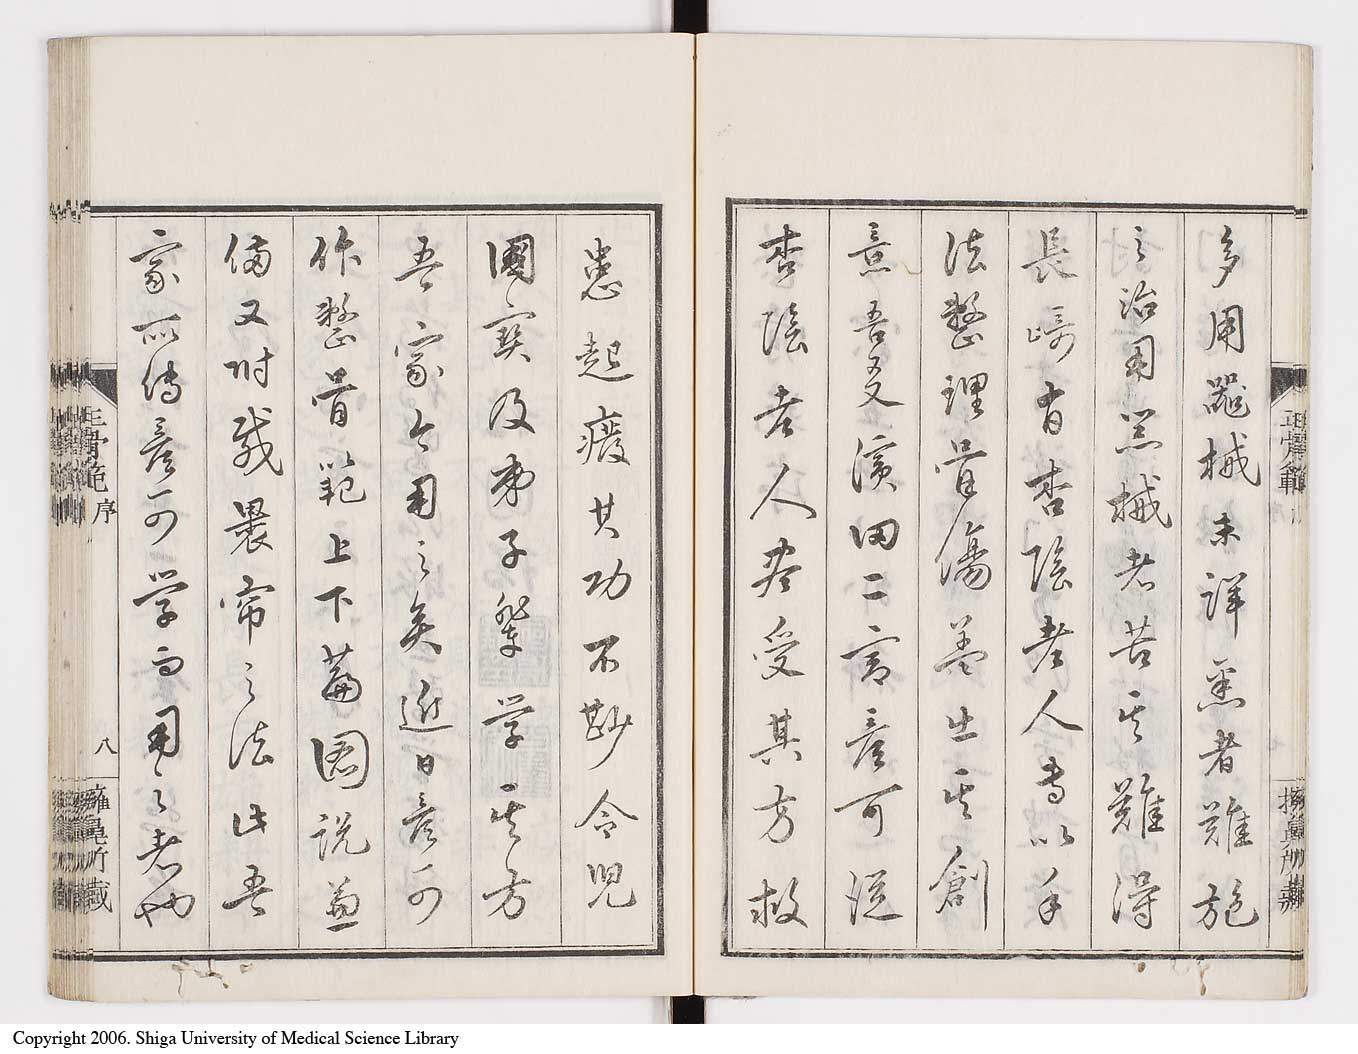 多用器械未詳悉者難施
之治用器械者苦其難得
長崎有杏蔭老人専以手
法整理骨傷蓋出其創
意吾友濱田二言彦可従
杏蔭老人尽受其方救
患起癈其功不尠令児
國寶及弟子輩学其方
吾家今用之矣近日彦可
作整骨範上下篇図説並
備又附裁畏帘之法此吾
家所傳彦可学而用之者也
正骨範 序
八
擁鼻所蔵
Copyright 2006. Shiga University of Medical Science Library